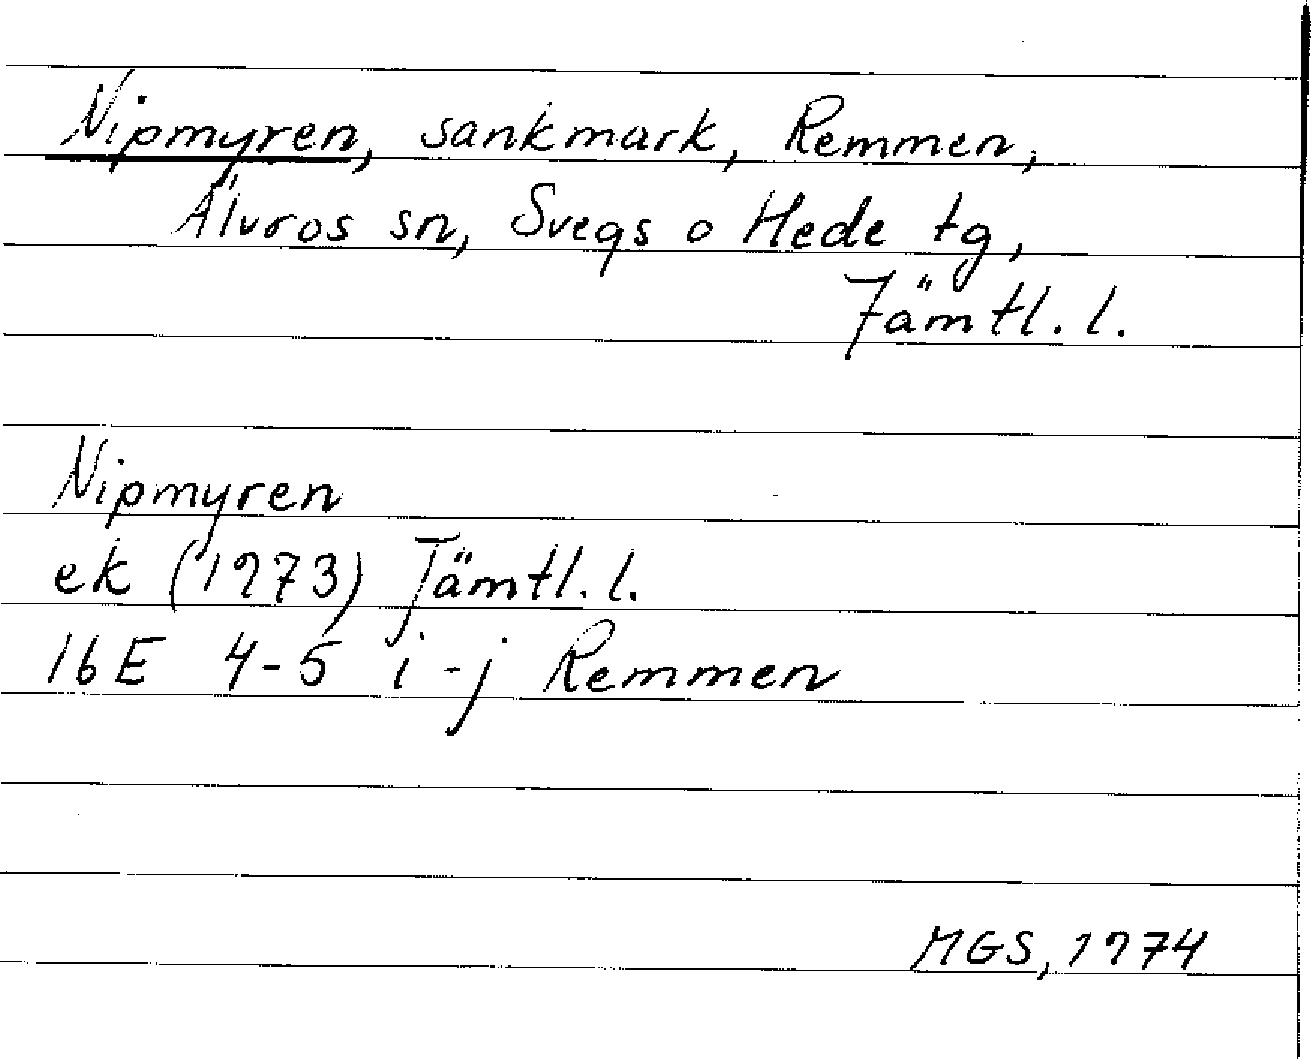 Nipmyren, sankmark, Remmen,
Älvros sn, Svegs o Hede tg,
Jämtl. l.
Nipmyren
ek (1973) Jämtl. l.
16E 4-5 i-j Remmen
MGS, 1974